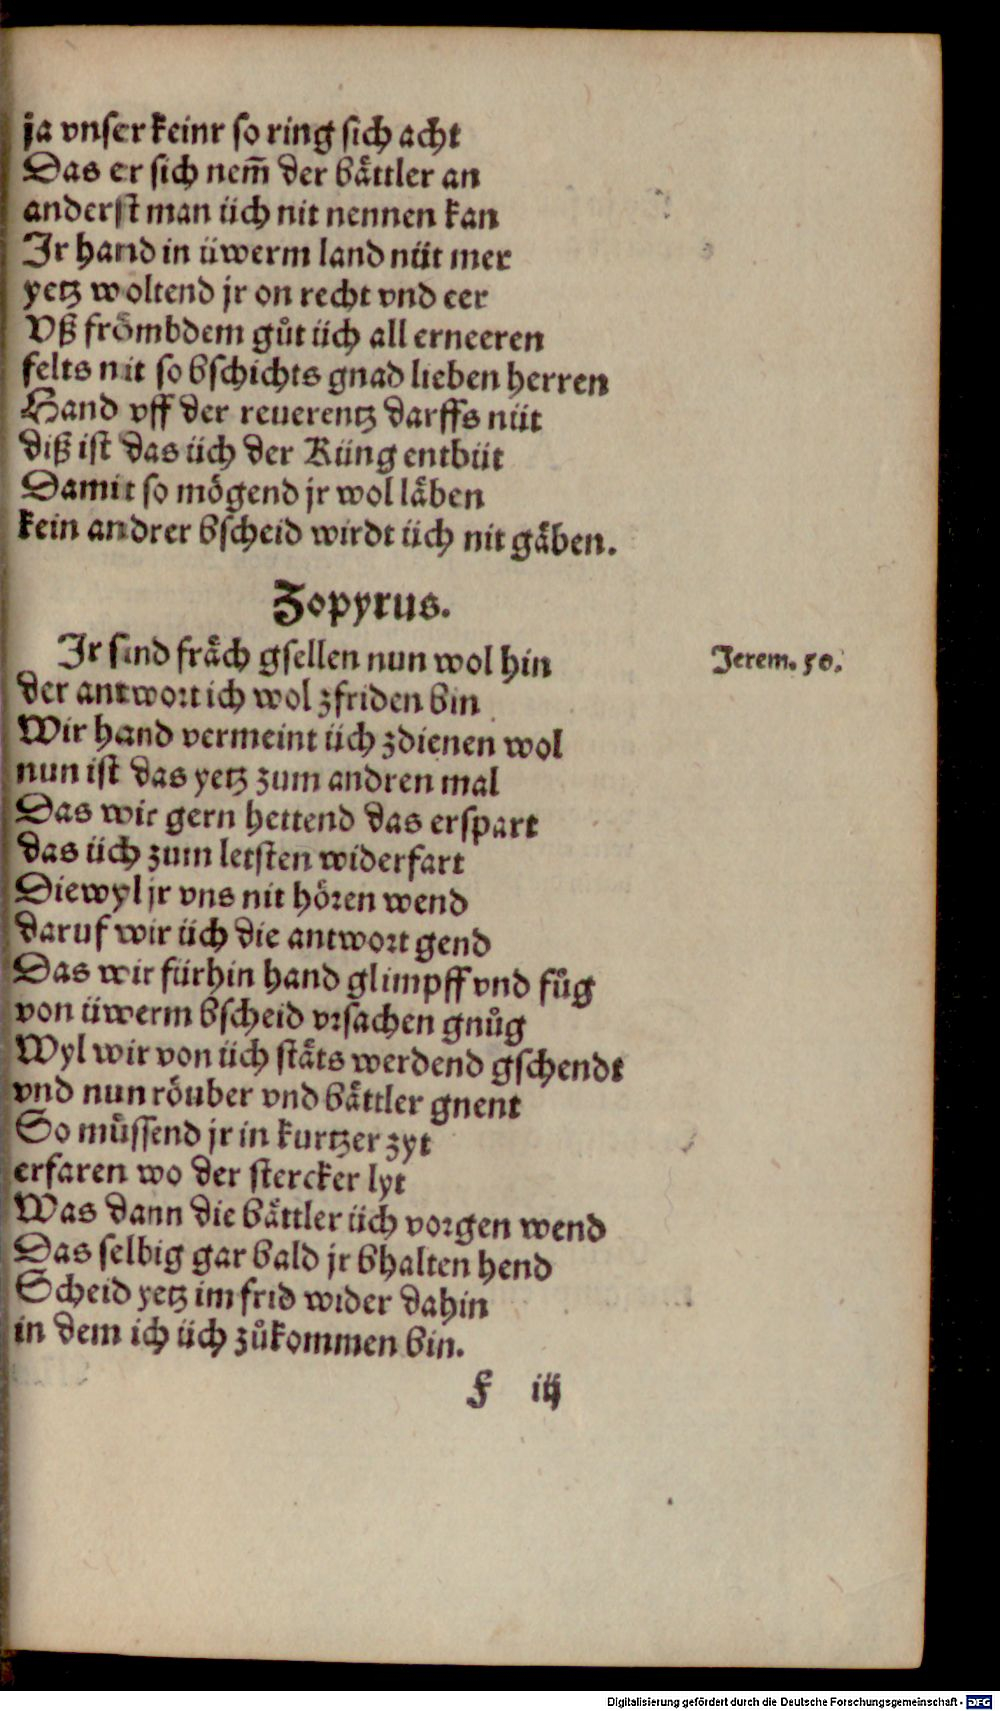 ja vnser keinr so ring sich acht
Das er sich nem̃ der bättler an
anderst man üch nit nennen kan
Ir hand in üwerm land nüt mer
yetz woltend jr on recht vnd eer
Vß frömbdem gůt üch all erneeren
felts nit so bschichts gnad lieben herren
Hand vff der reuerentz darffs nüt
diß ist das üch der Küng entbüt
Damit so mögend jr wol läben
kein andrer bscheid wirdt üch nit gäben.
Zopyrus.
Ir sind fräch gsellen nun wol hin
Jerem. 50.
der antwort ich wol zfriden bin
Wir hand vermeint üch zdienen wol
nun ist das yetz zum andren mal
Das wir gern hettend das erspart
das üch zum letsten widerfart
Diewyl jr vns nit hören wend
daruf wir üch die antwort gend
Das wir fürhin hand glimpff vnd fůg
von üwerm bscheid vrsachen gnůg
Wyl wir von üch stäts werdend gschendt
vnd nun röuber vnd bättler gnent
So müssend jr in kurtzer zyt
erfaren wo der stercker lyt
Was dann die bättler üch vorgen wend
Das selbig gar bald jr bhalten hend
Scheid yetz im frid wider dahin
in dem ich üch zůkommen bin.
F iij
Digitalisierung gefördert durch die Deutsche Forschungsgemeinschaft - DFG